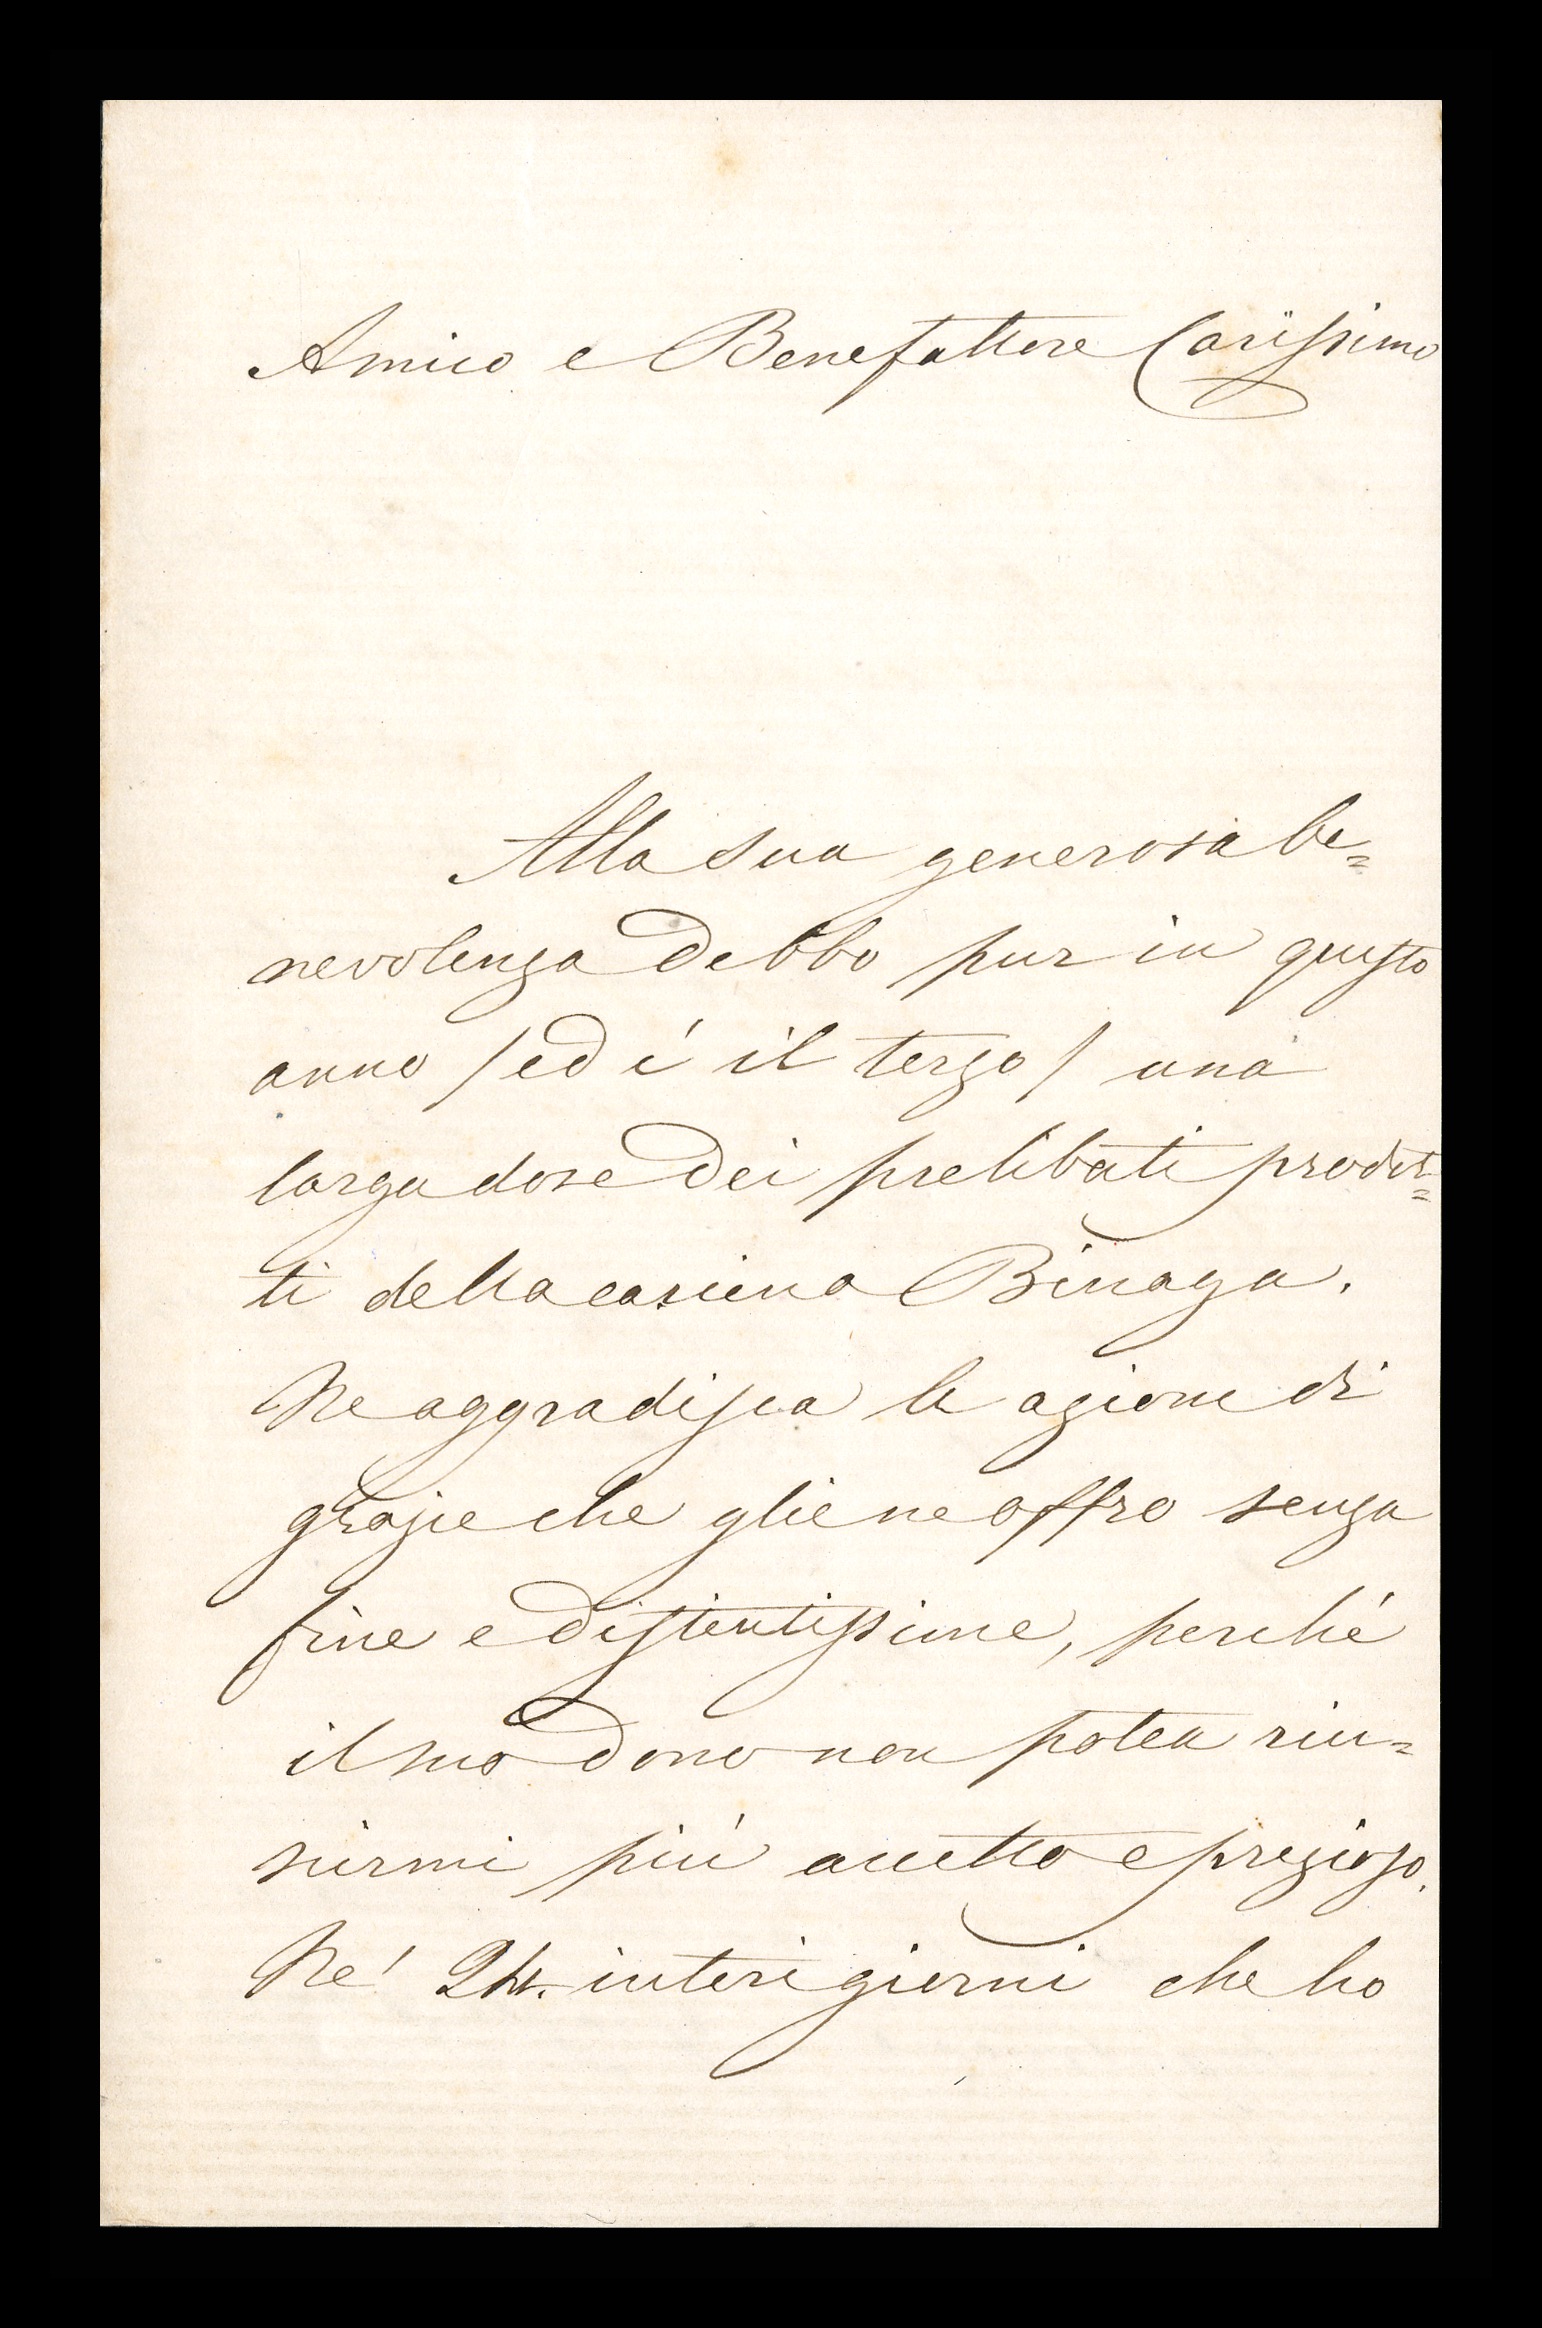 Amico e Benefattore Carissimo
Alla sua generosa be=
nevolenza debbo pur in questo
anno /ed é il terzo/ una
larga dose dei prelibati prodot=
ti della cascina Binaga.
Ne aggradisca le azioni di
grazie che gliene offro senza
fine e distintissime, perché
il suo dono non potea riu=
scirmi più accetto e prezioso.
Né 24. interi giorni che ho